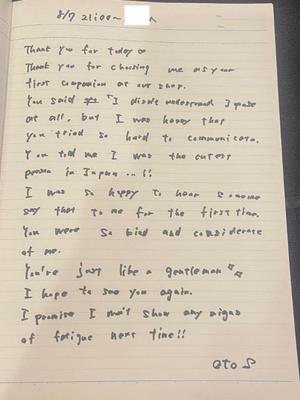 8/7 21:00~
Thank you for today♡
Thank you for choosing me as your
first companion at our shop.
You said 「I didn't understand Japanese
at all, but I was happy that
you tried so hard to communicate.
You told me I was the cutest
person in Japan..!!
I was so happy to hear someone
say that to me for the first time.
You were so kind and considerate
of me.
You're just like a gentleman
I hope to see you again.
I promise I won't show any signs
of fatigue next time!!